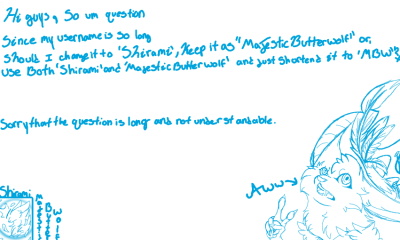 Hi guys, So um question
Since my username is so long
Should I change it to 'Shirami', Keep it as "MajesticButterwolf" or,
use Both 'Shirami' and 'MajesticButterwolf' and just shortend it to 'MBW's
Sorry that the question is long and not understandable.
Aww
Shirami
Majestic
Butter
Wolf